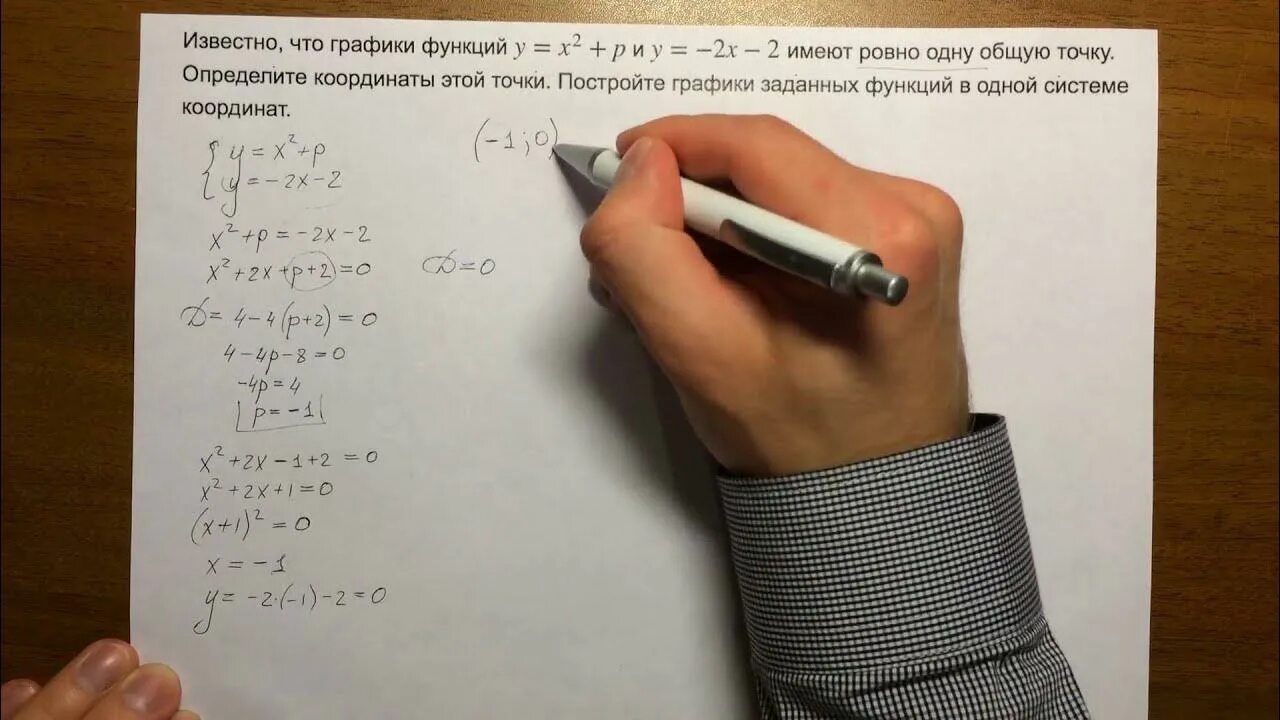 Известно, что графики функций y = x² + p и y = −2x − 2 имеют ровно одну общую точку.
Определите координаты этой точки. Постройте графики заданных функций в одной системе
координат.
{ y = x² + p
{ y = −2x − 2
x² + p = −2x − 2
x² + 2x + p + 2 = 0
D = 4 − 4(p+2) = 0
4 − 4p − 8 = 0
−4p = 4
p = −1
x² + 2x − 1 + 2 = 0
x² + 2x + 1 = 0
(x+1)² = 0
x = −1
y = −2·(−1) − 2 = 0
(−1; 0)
D = 0